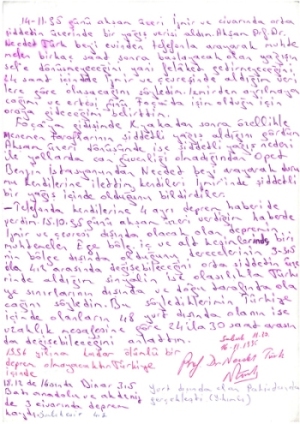 14-11-95 günü akşam üzeri İzmir ve civarında orta
şiddetin üzerinde bir yağış verisi aldım. Akşam P.f. Dr.
Necdet Türk beyi evinden telefonla arayarak muhte
melen birkaç saat sonra başlayacak olan yağışın
sele dönüşeceğini yarı felaket getireceğini,
24 saat içinde İzmir ve çevresinde aldığım veri
lere göre oluşacağını söyledim. İzmirden ayrılmaya
cağımı ve ertesi günü Foça'da işim olduğu için
oraya gideceğimi belirttim.
Foça gidişinde K.yaka'dan sonra özellikle
Menemen taraflarının şiddetli yağış aldığını gördüm
Akşam üzeri dönüşümde ise şiddetli yağış nedeni
ile yollarda can güvenliği olmadığından Opet
Benzin İstasyonundan Necdet beyi arayarak duru
mu kendilerine ilettim. kendileri İzmirinde şiddetli
bir yağış içinde olduğunu bildirdiler.
-Telefonda kendilerine 4 ayrı deprem haberi de
verdim. 15.10.95 günü akşam üzeri verdiğim haberde
İzmir ve çevresi dışında olacak olan depremin
muhtemelen Ege bölgesi iç ve alt kesimlerinde biri
nin bölge dışında olduğunu derecelerinin 3-
ila 4.2 arasında değişebileceğini bir şiddetin üze
rinde aldığım sinyalin ise olasılıkla Türki
ye sınırlarının dışında ve doğu tarafında ola
cağını söyledim. Bu söylediklerimin Türkiye
içinde olanların 48 yurt dışında olanın ise
uzaklık mesafesine göre 24 ila 30 saat arasın
da değişebileceğini anlattım.
1996 yılına kadar ölümlü bir
deprem olmayacaktır. Türkiye
içinde
Saat 11.12
16.11.1995
Prof. Dr. Necdet Türk
18.12 de 14 ocade Dinar 3.5
Batı anadolu ve akdeniz
de 3 civarında deprem
Yurt dışında olan Pakistanda
gerçekleşti